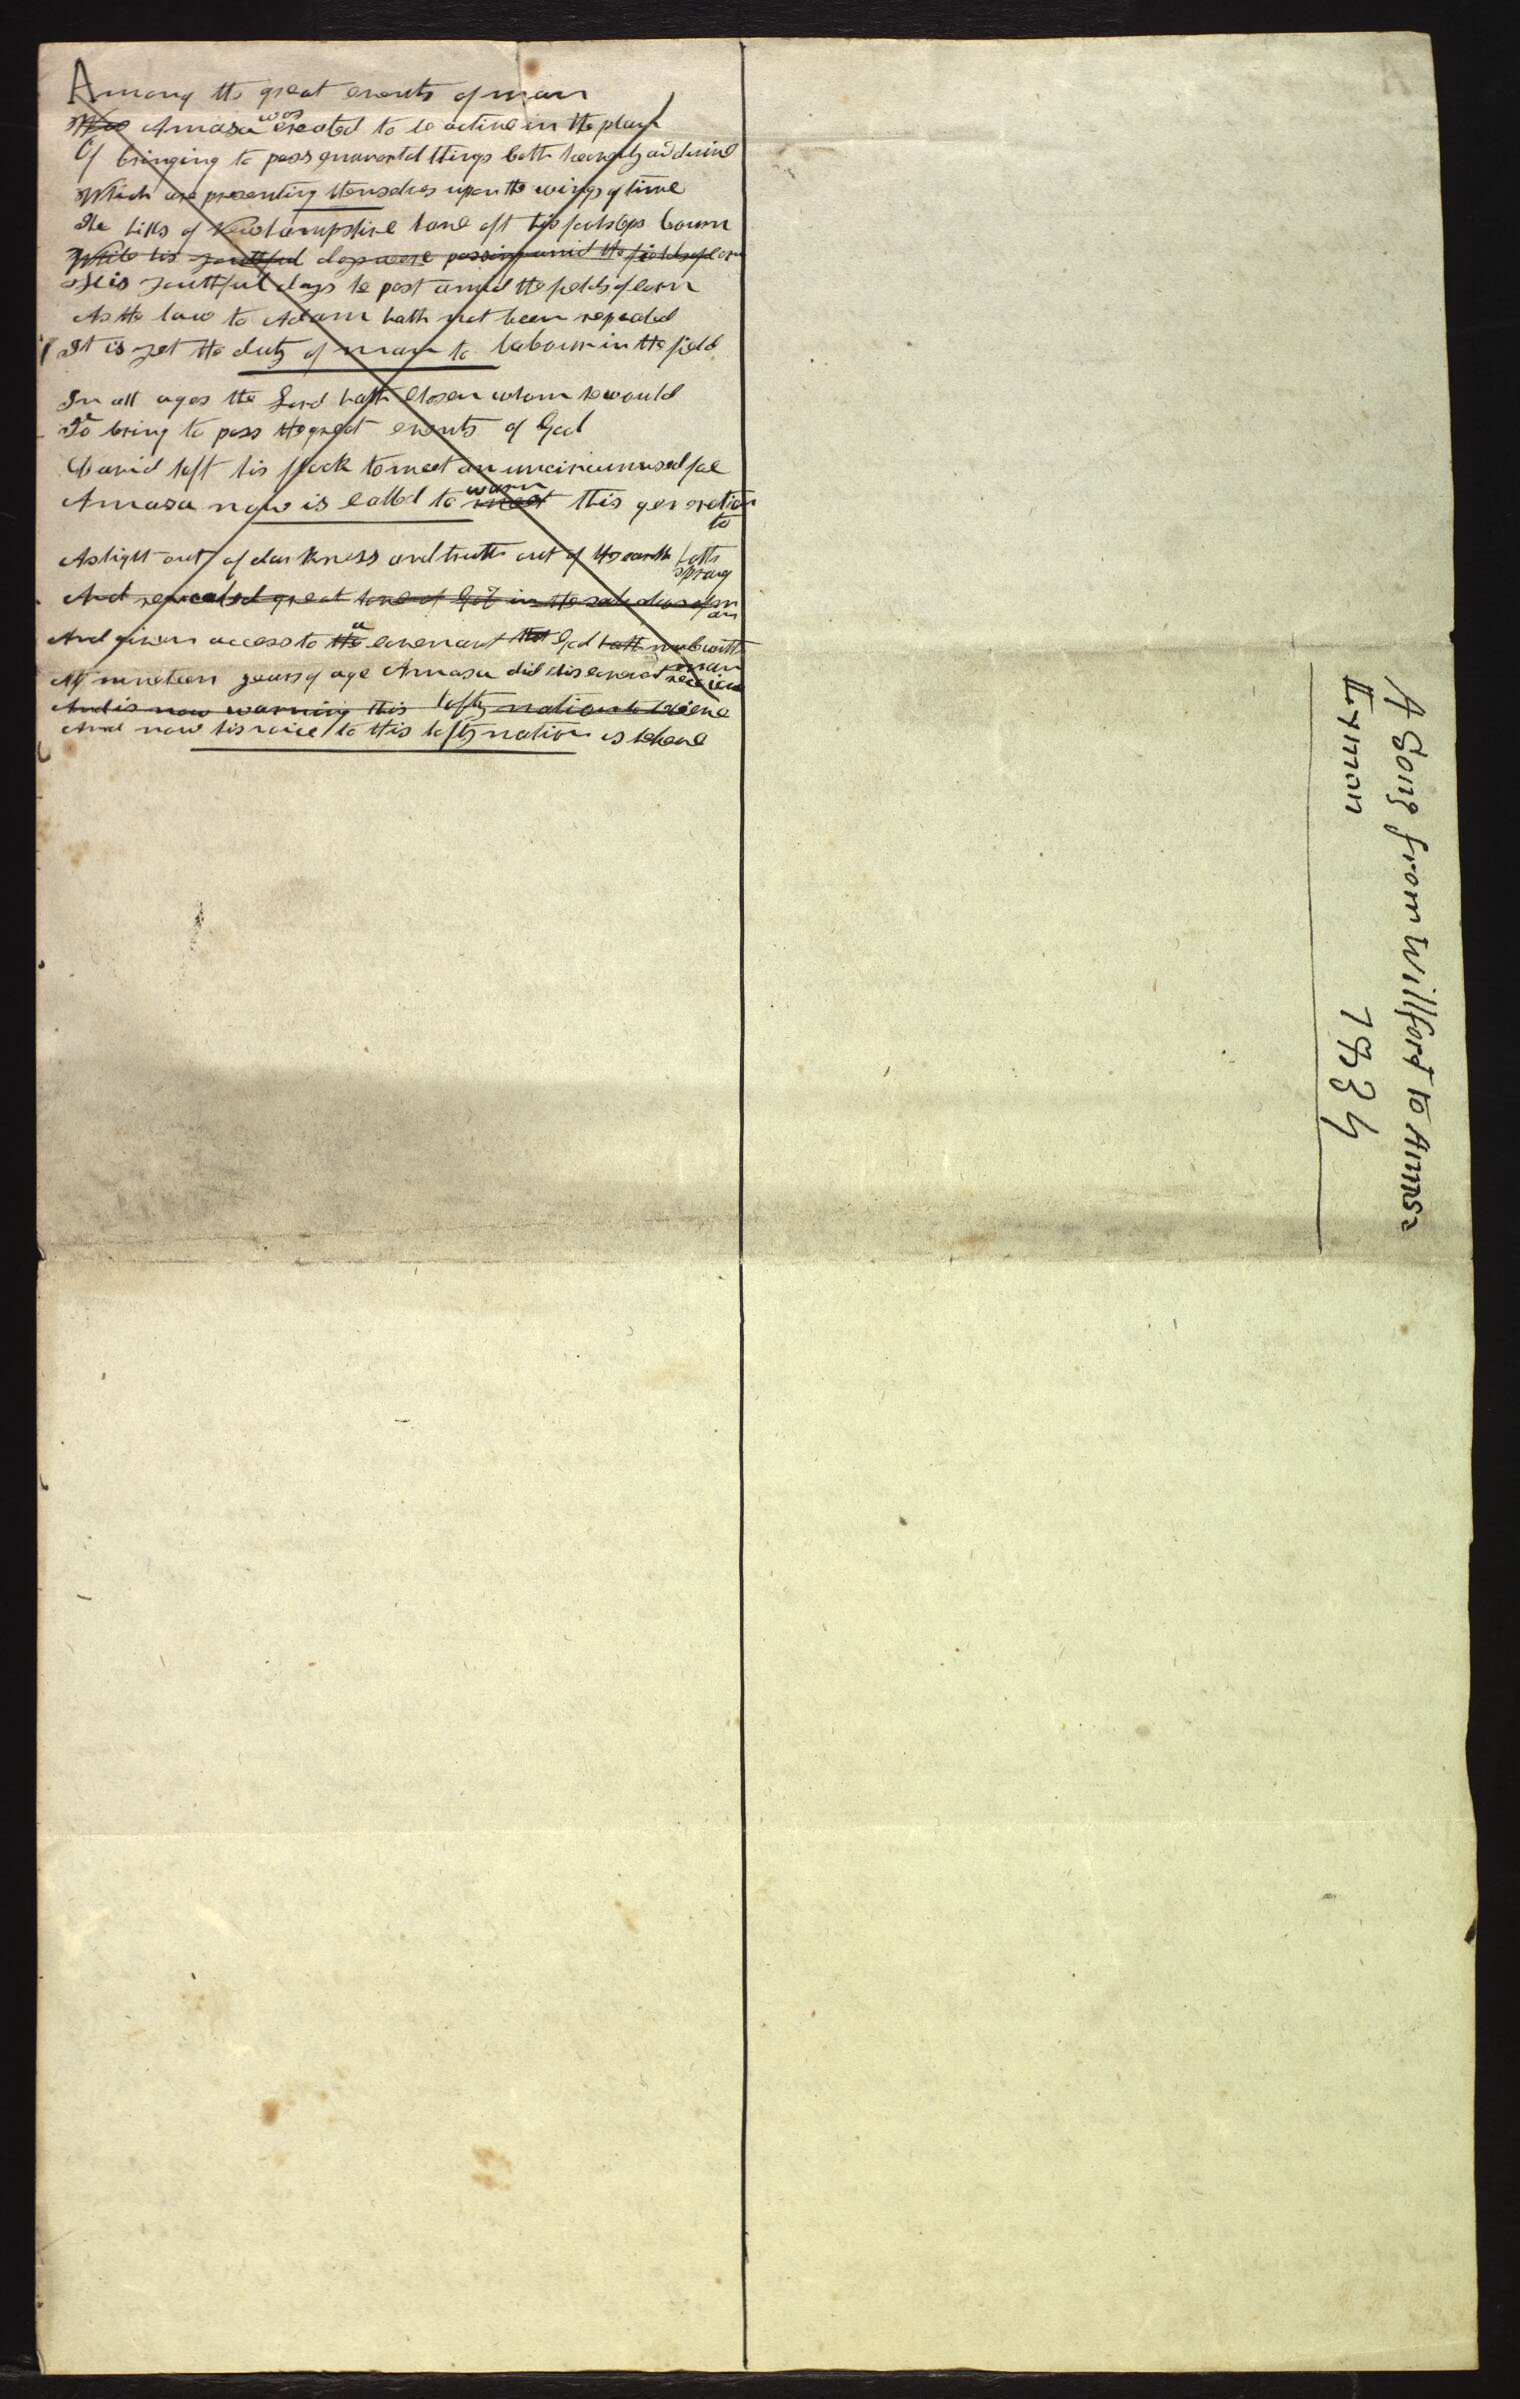 Among the great events of man
Was Amasa was created to be active in the plan
Of bringing to pass immortal things both heavenly and divine
Which are presenting themselves upon the wings of time
The hills of Newhampshire have oft his footsteps bourn
While his youthful days were passing amid the fields of corn
His youthful days he past amid the fields of corn
As the law to Adam hath not been repealed
It is yet the duty of man to labour in the field
In all ages the Lord hath chosen whom he would
To bring to pass the great events of God
David left his flock to meet an uncircumsed foe
Amasa now is called to meet warn this generation
to
As light out of darkness and truth out of the earth hath
sprang
And revealed great love of God in the salvation of m
an
And given access to the a covenant that God hath made with
man
At nineteen years of age Amasa did this covenant receive
And is now warning this lofty nation to believe
And now his voice to this lofty nation is heard
A Song from Willford to Amasa
Lyman 1834